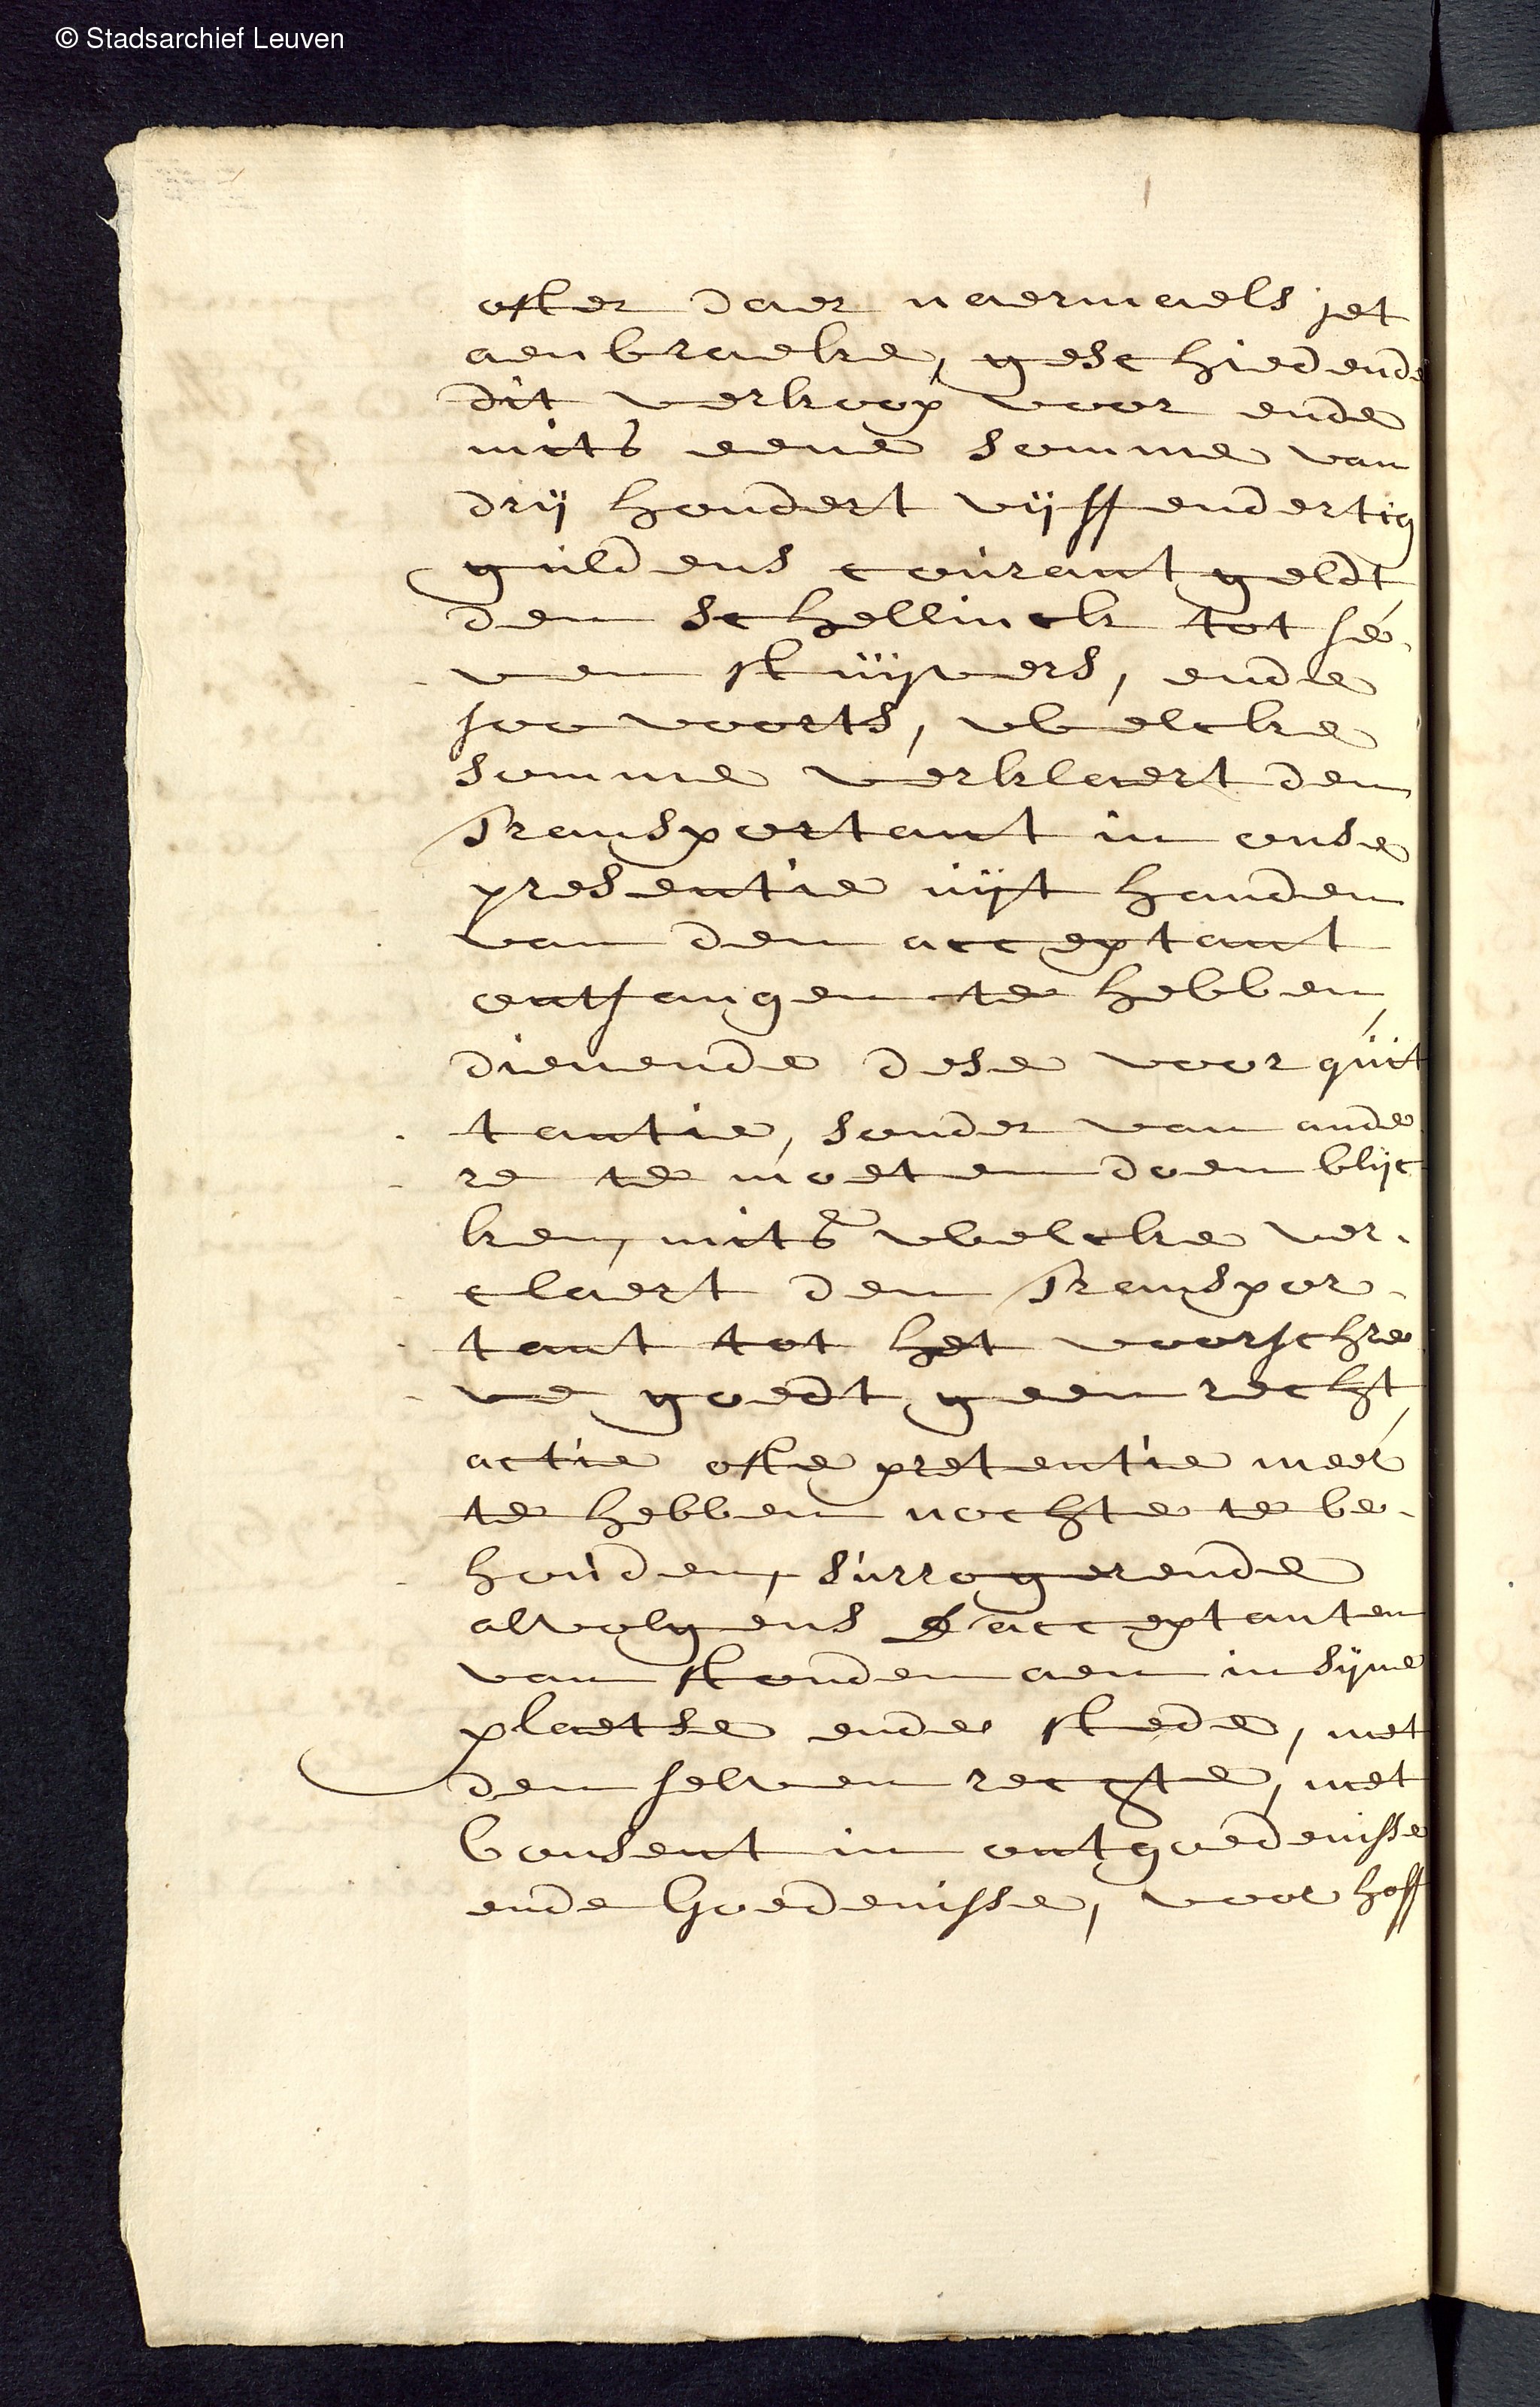 © Stadsarchief Leuven
ofter daer naermaels jet
aenbraeke, geschiedende
dit verkoop voor ende
mits eene somme van
drij hondert vijff endertig
guldens courant geldt
den schellinck tot se
ven stuijvers, ende
soo voorts, welcke
somme verklaert den
Transportant in onse
presentie uijt handen
van den acceptant
ontfangen te hebben,
dienende dese voor quit
tantie, sonder van ande
re te moeten doen blijc
ken, mits welcke ver-
claert den Transpor-
tant tot het voorschre
ve goedt geen recht,
actie ofte pretentie meer
te hebben nochte te be-
houden, surrogerende
alvolgens d'acceptanten
van stonden aen in sijne
plaetse ende stede, met
den selven rechte, met
Consent in ontgoedenisse
ende Goedenisse, voor hoff